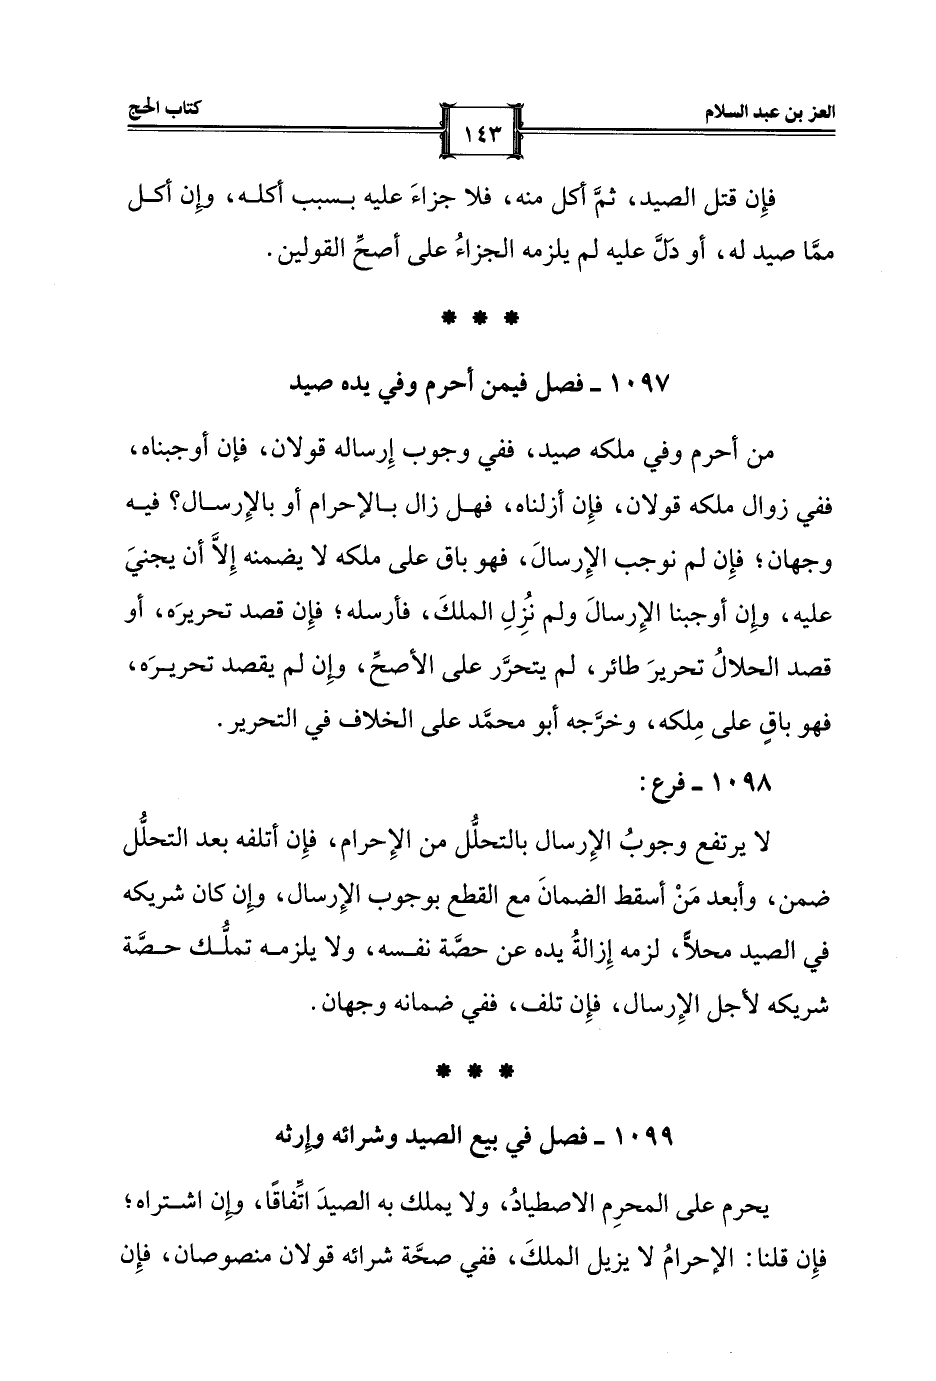 العز بن عبد السلام
١٤٣
كتاب الحج
فإن قتل الصيد، ثمَّ أكل منه، فلا جزاءَ عليه بسبب أكله، وإن أكل
ممَّا صيد له، أو دَلَّ عليه لم يلزمه الجزاءُ على أصحِّ القولين.
* * *
١٠٩٧ - فصل فيمن أحرم وفي يده صيد
من أحرم وفي ملكه صيد، ففي وجوب إرساله قولان، فإن أوجبناه،
ففي زوال ملكه قولان، فإن أزلناه، فهل زال بالإحرام أو بالإرسال؟ فيه
وجهان؛ فإن لم نوجب الإرسالَ، فهو باق على ملكه لا يضمنه إلاَّ أن يجنيَ
عليه، وإن أوجبنا الإرسالَ ولم نُزِلِ الملكَ، فأرسله؛ فإن قصد تحريرَه، أو
قصد الحلالُ تحريرَ طائر، لم يتحرَّر على الأصحِّ، وإن لم يقصد تحريرَه،
فهو باقٍ على مِلكه، وخرَّجه أبو محمَّد على الخلاف في التحرير.
١٠٩٨ - فرع:
لا يرتفع وجوبُ الإرسال بالتحلُّل من الإحرام، فإن أتلفه بعد التحلُّل
ضمن، وأبعد مَنْ أسقط الضمانَ مع القطع بوجوب الإرسال، وإن كان شريكه
في الصيد محلاًّ، لزمه إزالةُ يده عن حصَّة نفسه، ولا يلزمه تملُّك حصَّة
شريكه لأجل الإرسال، فإن تلف، ففي ضمانه وجهان.
* * *
١٠٩٩ - فصل في بيع الصيد وشرائه وإرثه
يحرم على المحرِم الاصطيادُ، ولا يملك به الصيدَ اتِّفاقًا، وإن اشتراه؛
فإن قلنا: الإحرامُ لا يزيل الملكَ، ففي صحَّة شرائه قولان منصوصان، فإن